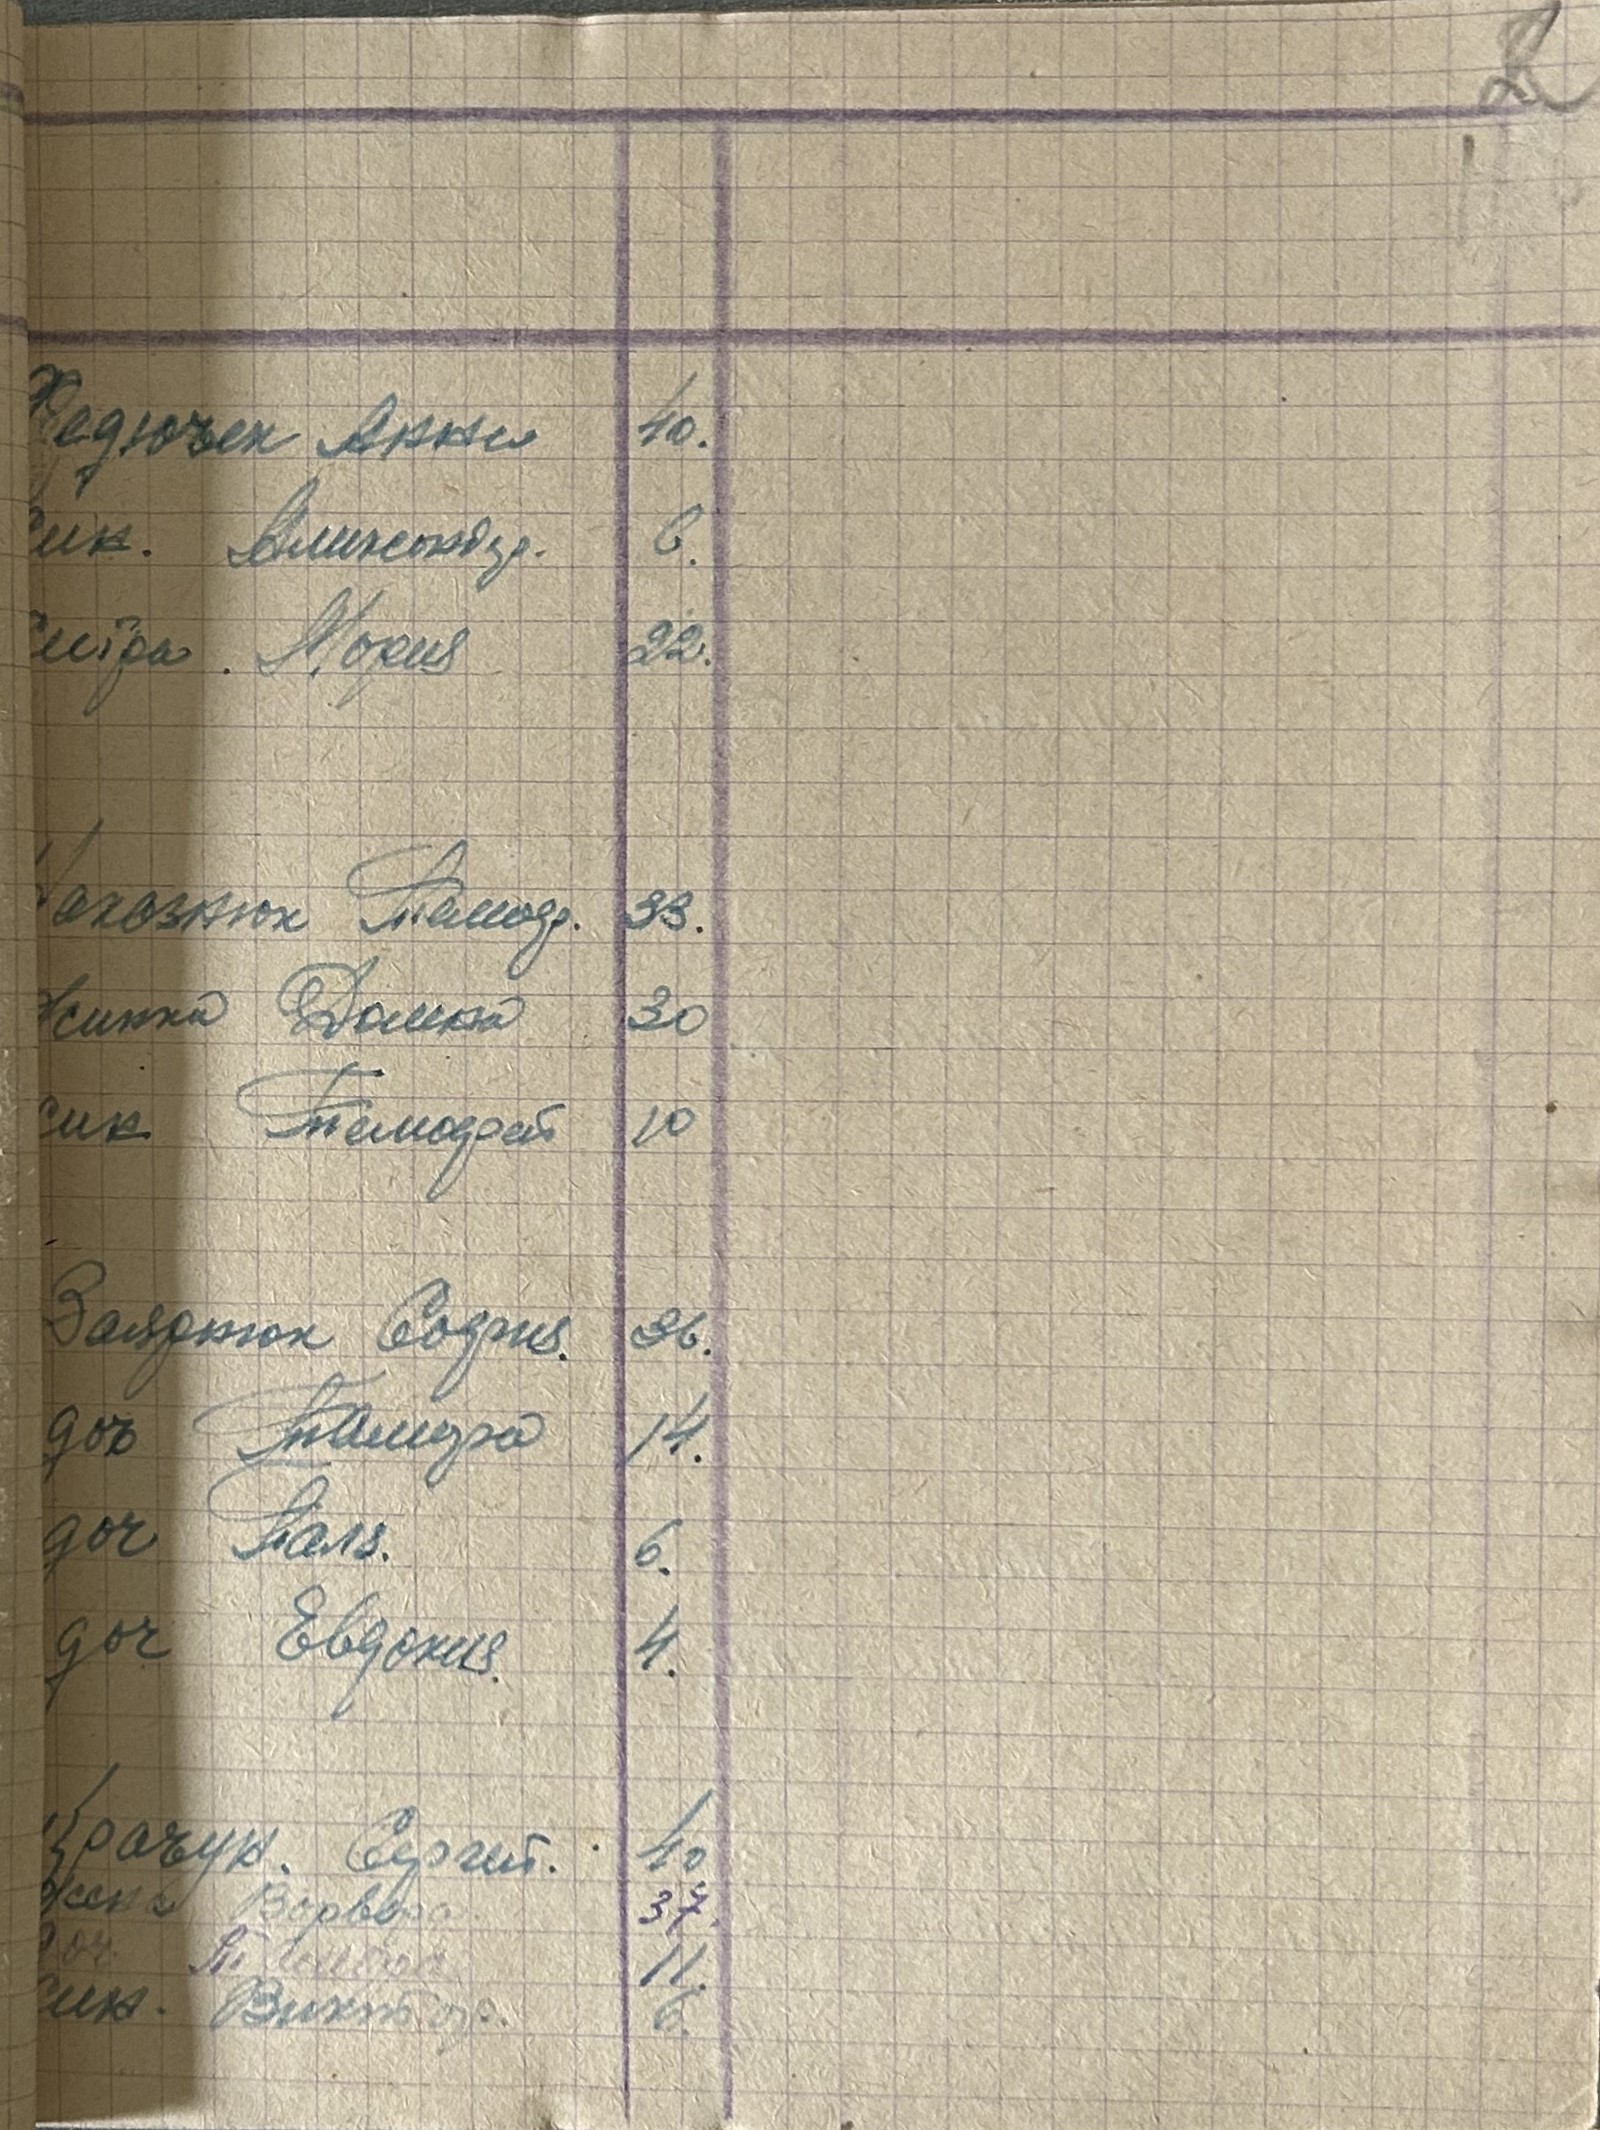 Федючек Анна 40.
син. Аликсандр. 6.
систра. Мария 22.
Тимодр. 33.
жинка Домка 30
син Тимодфей 10
Заярнюк София. 36.
доч Тамара 14.
доч Галя. 6.
доч Евдокия. 4.
Крачук. Сергей. 40
жена Варвара 37.
доч 11.
син. Виктор. 6.